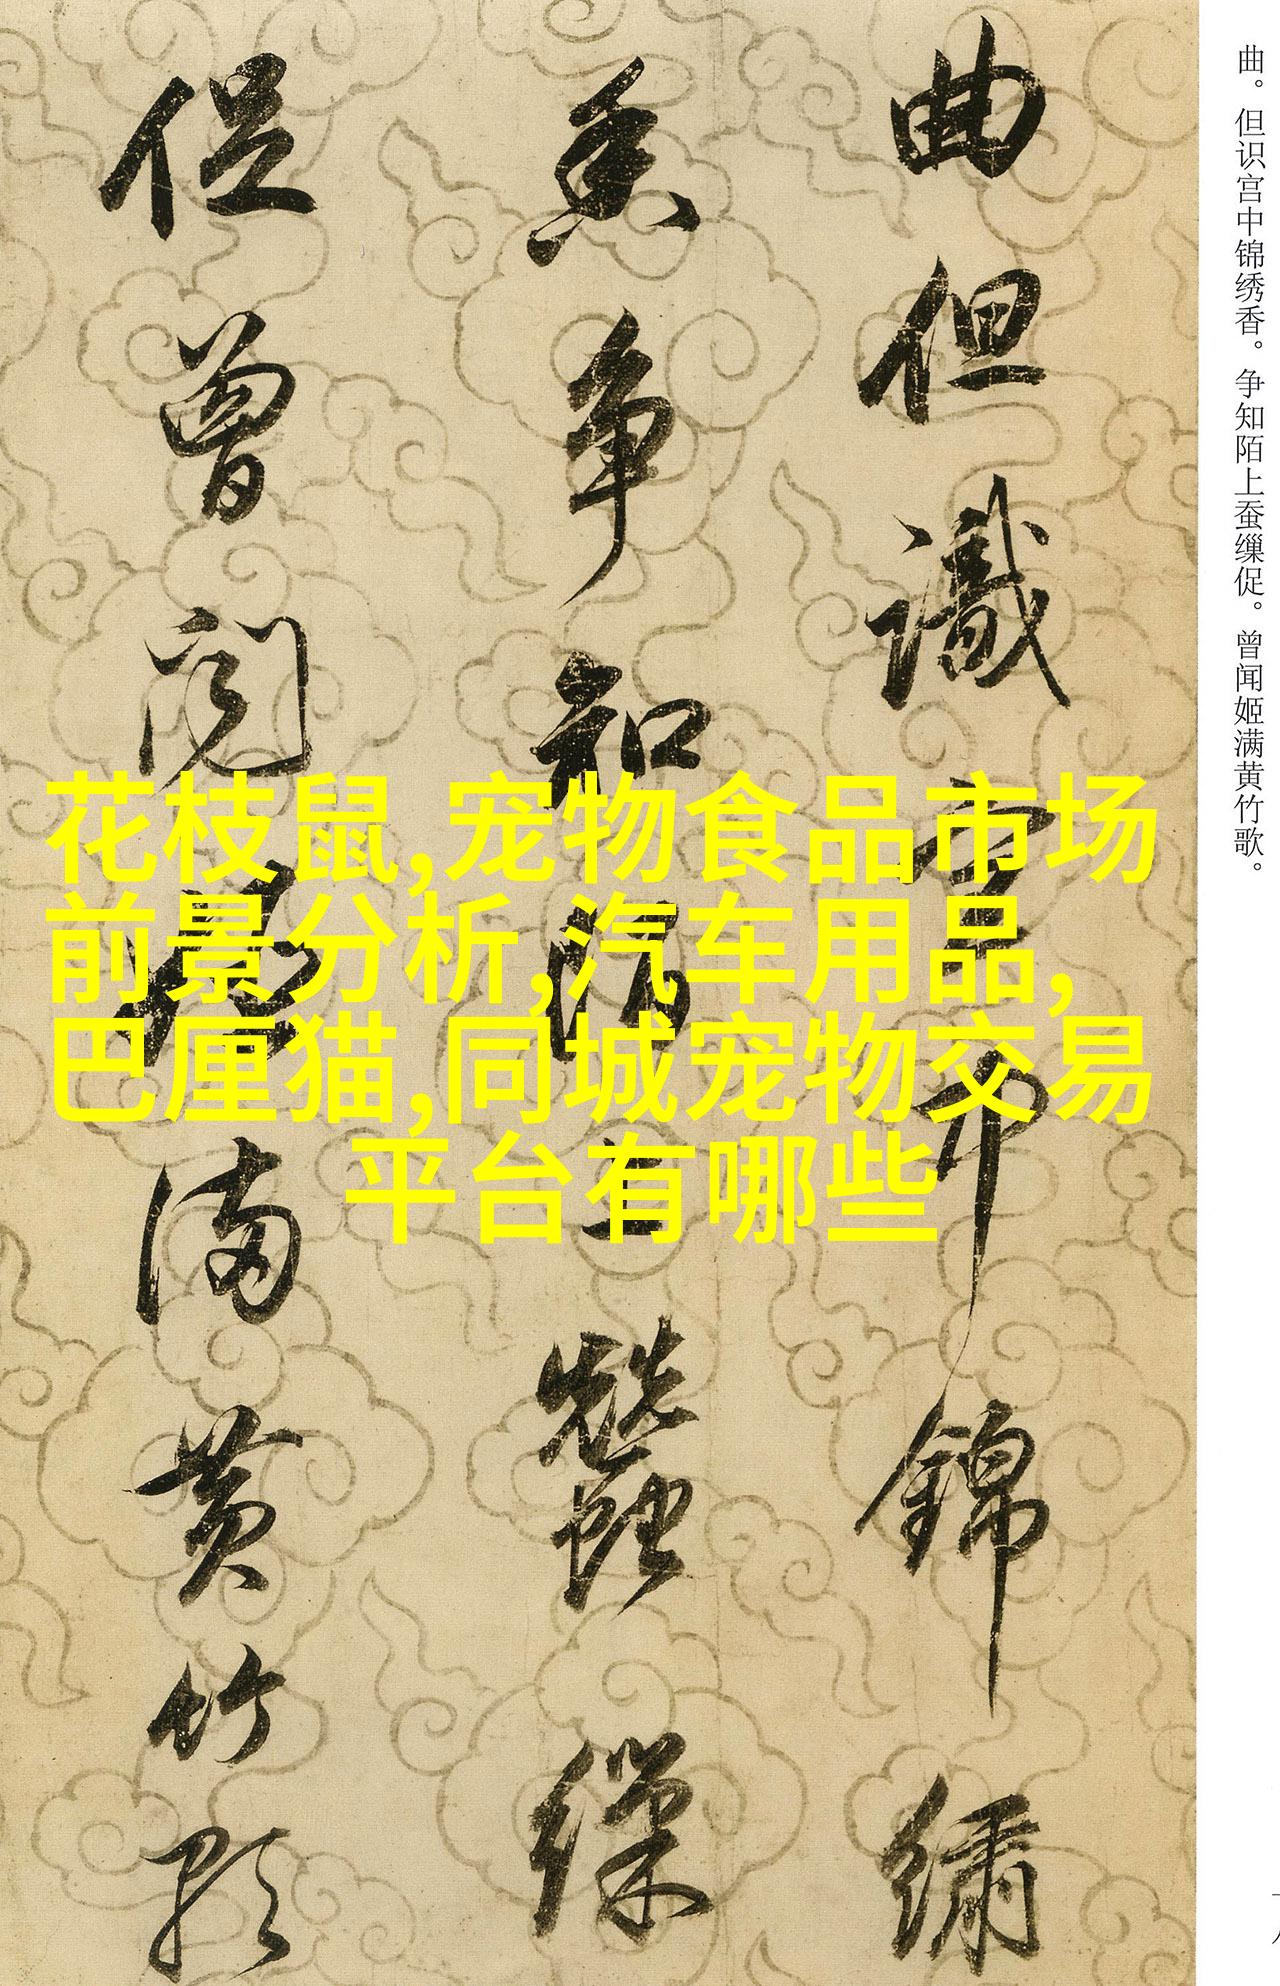 曲。但识宫中锦绣香。争知陌上蚕缫促。曾闻姬满黄竹歌。
曲但識宫中錦繡
香争知陌上蠶繅
促曾聞姬滿黄竹歌
花枝鼠,宠物食品市场
前景分析,汽车用品,
巴厘猫,同城宠物交易
平台有哪些